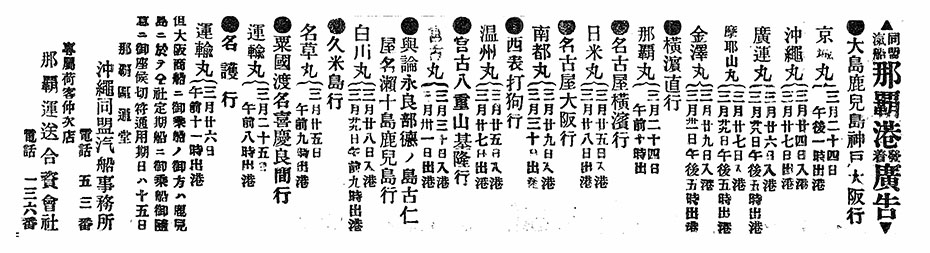 ▲同盟汽船那覇港發着廣告▼
●大島鹿兒島神戸大阪行
京城丸(三月二十四日午後一時出港
沖繩丸(三月廿四日入港三月廿七日出港
廣運丸(三月廿六日入港三月廿九日午後五時出港
摩耶山丸(三月廿七日入港
金澤丸(三月廿九日入港三月卅一日午後五時出港
●橫濱直行
那覇丸(三月二十四日午前十時出
●名古屋橫濱行
日米丸(三月廿九日入港三月卅一日午後五時出港
●名古屋大阪行
南都丸(三月二十八日入港三月三十日出發
●西表打狗行
温州丸(三月廿五日入港三月廿七日出港
●宮古八重山基隆行
宮古丸(三月三十日入港三月卅一日出港
●與論永良部德ノ島古仁
屋名瀬十島鹿兒島行
白川丸(三月廿八日入港三月廿九日前九時出港
●久米島行
名草丸(三月廿五日午前九時出港
●粟國渡名喜慶良間行
運輸丸(三月二十五日午前八時出港
●名護行
運輸丸(三月廿六日午前十一時出港
但大阪商船ニ御乗船ノ御方ハ鹿兒
島ニ於テ仝社定期船ニ御乗船御隨
意ニ御座候切符通用期日ハ十五日
那覇區通堂
沖繩同盟汽船事務所
電話 五三番
專屬荷客仲次店
那覇運送合資會社
電話 一三六番